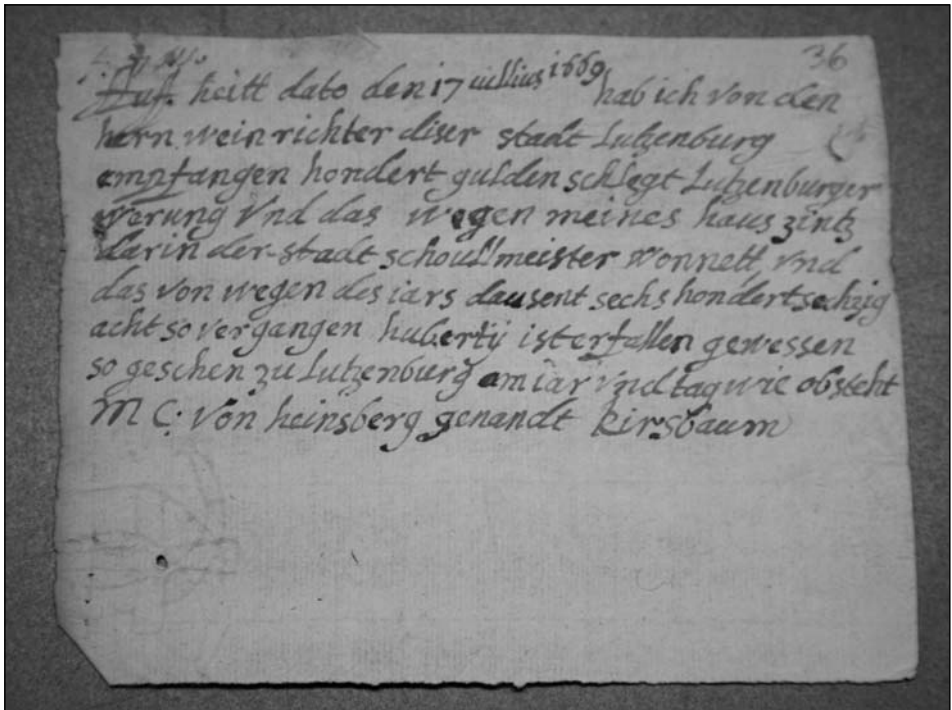 36
Auff heitt dato den 17 iullius 1669 hab ich von den
hern weinrichter diser stadt Lutzenburg
empfangen hondert gulden schlegt Lutzenburger
werung vnd das wegen meines haus zintz
darin der stadt schoullmeister wonnett vnd
das von wegen des iars dausent sechs hondert sechzig
acht so vergangen huberty ist erfallen gewessen
so geschen zu Lutzenburg am iar vnd tag wie obsteht
M C. von heinsberg genandt Kirsbaum